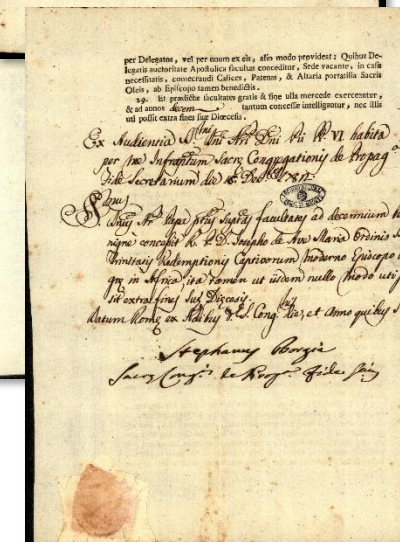 per Delegatos, vel per unum ex eis, alio modo provideat: Quibus De-
legatis auctoritate Apostolica facultas conceditur, Sede vacante, in casu
necessitatis, consecrandi Calices, Patenas, & Altaria portatilia Sacris
Oleis, ab Episcopo tamen benedictis.
29. Et prædictæ facultates gratis & sine ulla mercede exercentur,
& ad annos decem tantum concessæ intelligantur, nec illis
uti possit extra fines suæ Diœcesis.
Ex Audientia SSmi Dni Nri Pii PP VI habita
per me Infraptum Sacræ Congregationis de Propag
Fide Secretarium die
SSmus
Dnus Nr Papa ptus supras facultates ad decennium be
nigne concessit R. P. D. Josepho de Ave Maria Ordinis
Trinitatis Redemptionis Captivorum moderno Episcopo
in Africa ita tamen ut iisdem nullo modo uti
sit extra fines suæ Diœcesis.
Datum Romæ ex Ædibus d. S. Cong die, et anno quibus
Stephanus Borgia
Sacræ Congis de Propa Fide